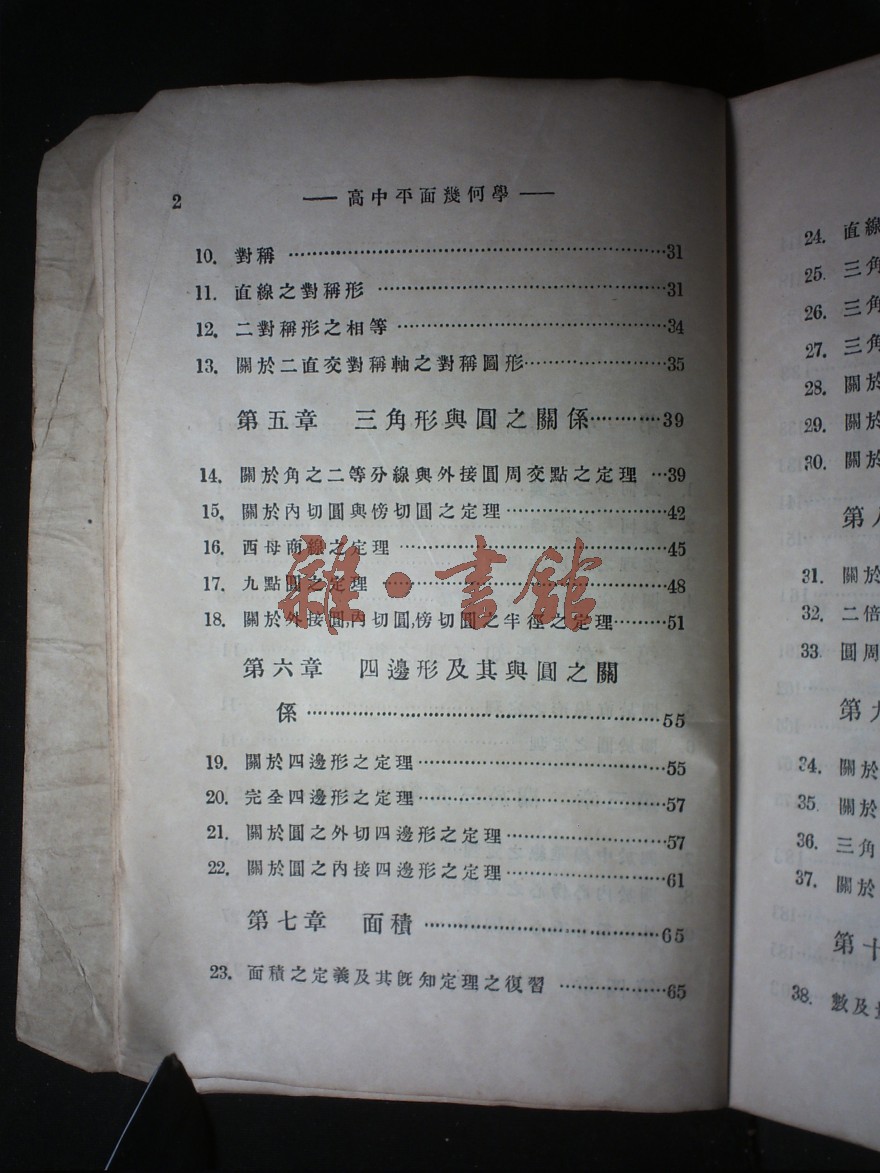 2
高中平面幾何學
10. 對稱 31
11. 直線之對稱形 31
12. 二對稱形之相等 34
13. 關於二直交對稱軸之對稱圖形 35
第五章 三角形與圓之關係 39
14. 關於角之二等分線與外接圓周交點之定理 39
15. 關於內切圓與傍切圓之定理 42
16. 西母商線之定理 45
17. 九點圓之定理 48
18. 關於外接圓,內切圓,傍切圓之半徑之定理 51
第六章 四邊形及其與圓之關
係 55
19. 關於四邊形之定理 55
20. 完全四邊形之定理 57
21. 關於圓之外切四邊形之定理 57
22. 關於圓之內接四邊形之定理 61
第七章 面積 65
23. 面積之定義及其旣知定理之復習 65
雜·書館
24. 直線
25. 三角
26. 三角
27. 三角
28. 關於
29. 關於
30. 關於
第八
31. 關於
32. 二倍
33. 圓周
第九
34. 關於
35. 關於
36. 三角
37. 關於
第十
38. 數及